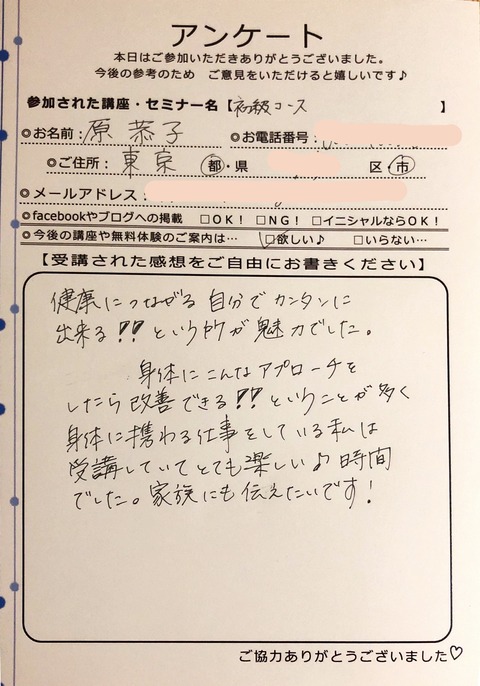 アンケート
本日はご参加いただきありがとうございました。
今後の参考のため ご意見をいただけると嬉しいです♪
参加された講座・セミナー名【初級コース】
◎お名前：原 恭子 ◎お電話番号：
◎ご住所：東京 都・県 区・市
◎メールアドレス：
◎facebookやブログへの掲載 □OK！ □NG！ □イニシャルならOK！
◎今後の講座や無料体験のご案内は… ☑欲しい♪ □いらない…
【受講された感想をご自由にお書きください】
健康につながる 自分でカンタンに
出来る!! という所が魅力でした。
身体にこんなアプローチを
したら改善できる!! ということが多く
身体に携わる仕事をしている私は
受講していてとても楽しい♪時間
でした。家族にも伝えたいです！
ご協力ありがとうございました♡